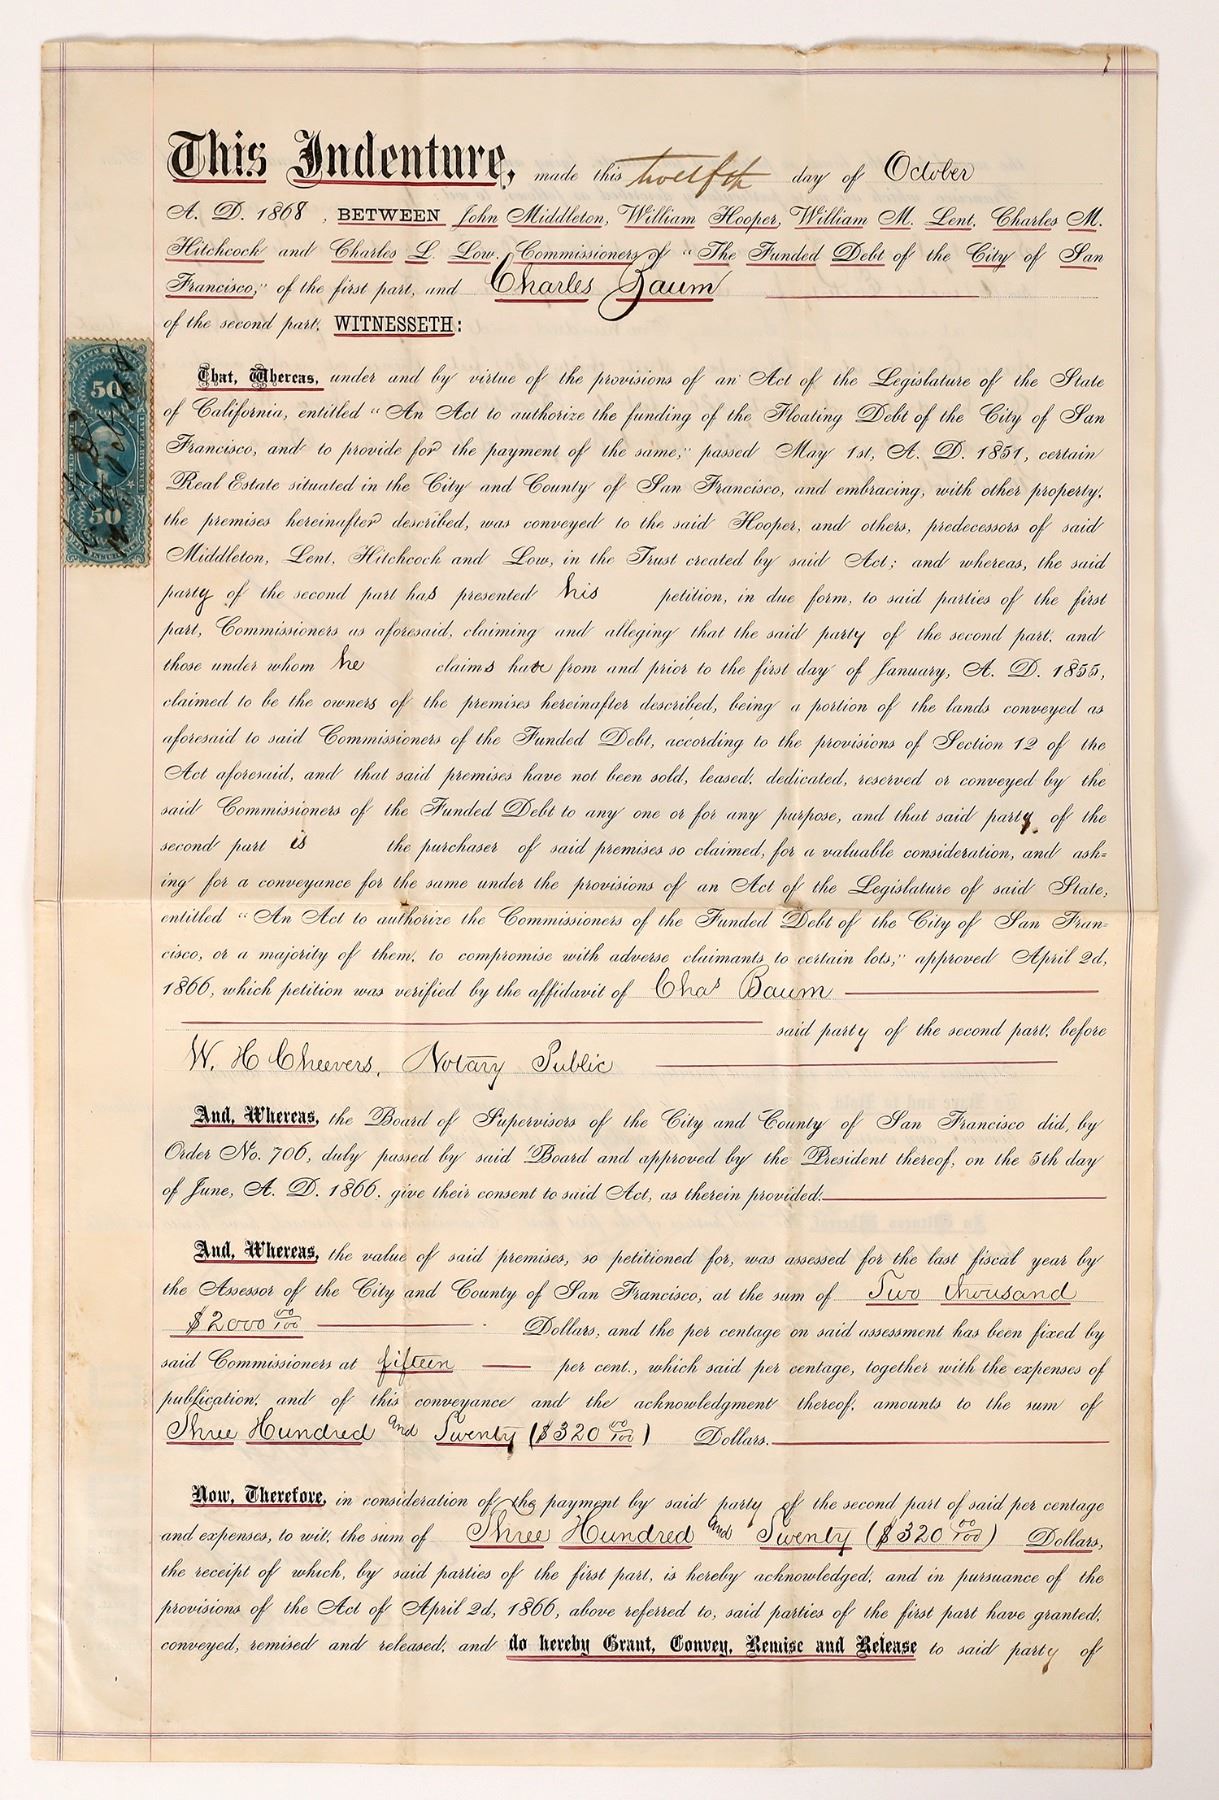 This Indenture, made this twelfth day of October
A. D. 1868, BETWEEN John Middleton, William Hooper, William M. Lent, Charles M.
Hitchcock and Charles L. Low, Commissioners of "The Funded Debt of the City of San
Francisco," of the first part, and Charles Baum
of the second part, WITNESSETH:
50
50
That, Whereas, under and by virtue of the provisions of an Act of the Legislature of the State
of California, entitled "An Act to authorize the funding of the Floating Debt of the City of San
Francisco, and to provide for the payment of the same," passed May 1st, A. D. 1851, certain
Real Estate situated in the City and County of San Francisco, and embracing, with other property,
the premises hereinafter described, was conveyed to the said Hooper, and others, predecessors of said
Middleton, Lent, Hitchcock and Low, in the Trust created by said Act; and whereas, the said
party of the second part has presented his petition, in due form, to said parties of the first
part, Commissioners as aforesaid, claiming and alleging that the said party of the second part, and
those under whom he claims have from and prior to the first day of January, A. D. 1855,
claimed to be the owners of the premises hereinafter described, being a portion of the lands conveyed as
aforesaid to said Commissioners of the Funded Debt, according to the provisions of Section 12 of the
Act aforesaid, and that said premises have not been sold, leased, dedicated, reserved or conveyed by the
said Commissioners of the Funded Debt to any one or for any purpose, and that said party of the
second part is the purchaser of said premises so claimed, for a valuable consideration, and ask=
ing for a conveyance for the same under the provisions of an Act of the Legislature of said State,
entitled "An Act to authorize the Commissioners of the Funded Debt of the City of San Fran=
cisco, or a majority of them, to compromise with adverse claimants to certain lots," approved April 2d,
1866, which petition was verified by the affidavit of Chas Baum
said party of the second part, before
W. H Cheevers, Notary Public
And, Whereas, the Board of Supervisors of the City and County of San Francisco did, by
Order No. 706, duly passed by said Board and approved by the President thereof, on the 5th day
of June, A. D. 1866, give their consent to said Act, as therein provided.
And, Whereas, the value of said premises, so petitioned for, was assessed for the last fiscal year by
the Assessor of the City and County of San Francisco, at the sum of Two thousand
$2000 00/100 Dollars, and the per centage on said assessment has been fixed by
said Commissioners at fifteen per cent., which said per centage, together with the expenses of
publication, and of this conveyance and the acknowledgment thereof, amounts to the sum of
Three Hundred and Twenty ($320 00/100) Dollars.
Now, Therefore, in consideration of the payment by said party of the second part of said per centage
and expenses, to wit, the sum of Three Hundred and Twenty ($320 00/100) Dollars,
the receipt of which, by said parties of the first part, is hereby acknowledged, and in pursuance of the
provisions of the Act of April 2d, 1866, above referred to, said parties of the first part have granted,
conveyed, remised and released, and do hereby Grant, Convey, Remise and Release to said party of